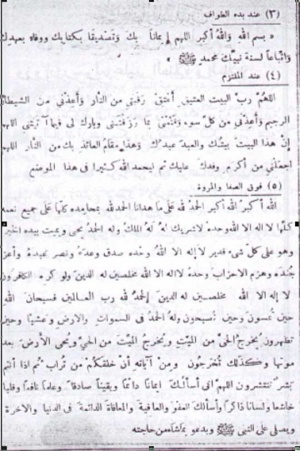 (٣) عند بدء الطواف
« بسم الله والله أكبر اللهم إيمانا بك وتصديقا بكتابك ووفاء بعهدك
واتباعا لسنة نبيك محمد ﷺ »
(٤) عند الملتزم
اللهم رب البيت العتيق أعتق رقبتي من النار وأعذني من الشيطان
الرجيم وأعذني من كل سوء وقنعني بما رزقتني وبارك لي فيما آتيتني اللهم
إن هذا البيت بيتك والعبد عبدك وهذا مقام العائذ بك من النار اللهم
اجعلني من أكرم وفدك عليك ثم ليحمد الله كثيرا في هذا الموضع
(٥) فوق الصفا والمروة
الله أكبر الله أكبر الحمد لله على ما هدانا الحمد لله بمحامده كلها على جميع نعمه
كلها لا اله الا الله وحده لا شريك له له الملك وله الحمد يحيي ويميت بيده الخير
وهو على كل شيء قدير لا إله الا الله وحده صدق وعده ونصر عبده وأعز
جنده وهزم الاحزاب وحده لا اله الا الله مخلصين له الدين ولو كره الكافرون
لا إله الا الله مخلصين له الدين الحمد لله رب العالمين فسبحان الله
حين تمسون وحين تصبحون وله الحمد في السموات والارض وعشيا وحين
تظهرون يخرج الحي من الميت ويخرج الميت من الحي ويحيي الأرض بعد
موتها وكذلك تخرجون ومن آياته أن خلقكم من تراب ثم اذا أنتم
بشر تنتشرون اللهم اني أسألك ايمانا دائما ويقينا صادقا وعلما نافعا وقلبا
خاشعا ولسانا ذاكرا وأسألك العفو والعافية والمعافاة الدائمة في الدنيا والاخرة
ويصلى على النبي ﷺ ويدعو بما شاء من حاجته